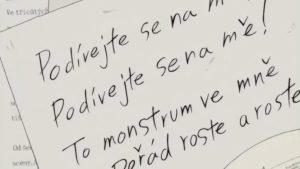 Ve třicátých
Podívejte se na m
Podívejte se na mě!
To monstrum ve mně
Pořád roste a roste